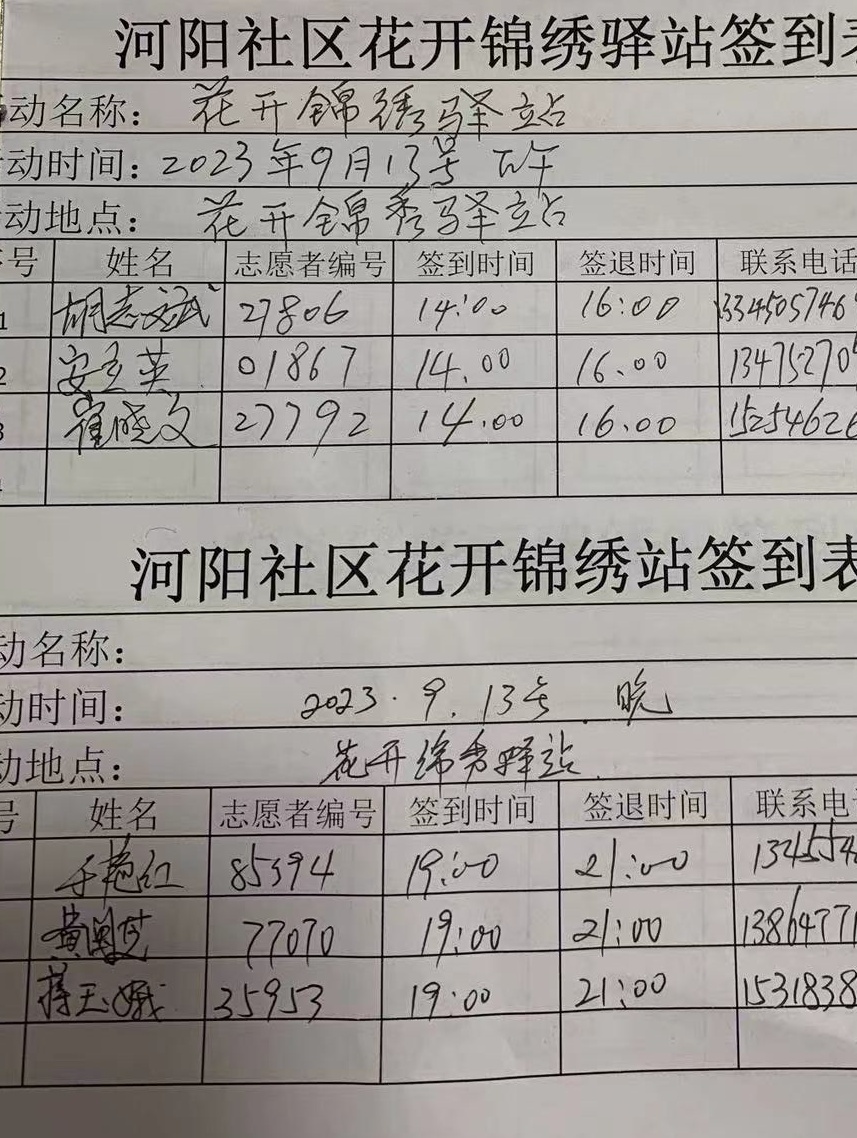 河阳社区花开锦绣驿站签到表
动名称: 花开锦绣驿站
动时间: 2023年9月13号 下午
动地点: 花开锦秀驿站
号 姓名 志愿者编号 签到时间 签退时间 联系电话
1 胡志斌 27806 14:00 16:00 1334505746
2 安立英 01867 14.00 16.00 134752705
3 崔晓文 27792 14.00 16.00 15254626
河阳社区花开锦绣站签到表
动名称:
动时间: 2023.9.13号.晚
动地点: 花开绵秀驿站.
号 姓名 志愿者编号 签到时间 签退时间 联系电话
于艳红 85394 19:00 21:00 134554
黄 77070 19:00 21:00 13864771
蒋玉娥 35953 19:00 21:00 1531838